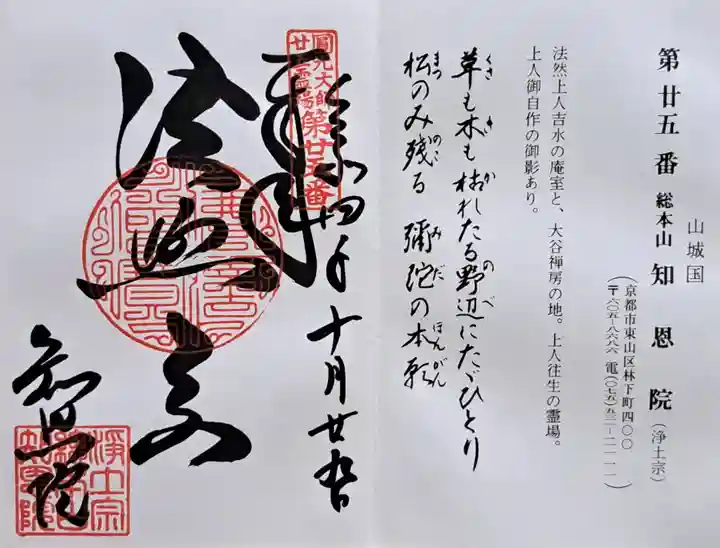 山城国
第廿五番 総本山 知恩院(浄土宗)
(京都市東山区林下町四〇〇
〒六〇五-八六八六 電(〇七五)五三一-二一一一)
草も木も枯れたる野辺にたゞひとり
松のみ残る 彌陀の本願
法然上人吉水の庵室と、大谷禅房の地。上人往生の霊場。
上人御自作の御影あり。
圓光大師
廿五霊場
第廿五番
奉拝
十月廿五日
法然
知恩院
浄土宗
総本山
知恩院